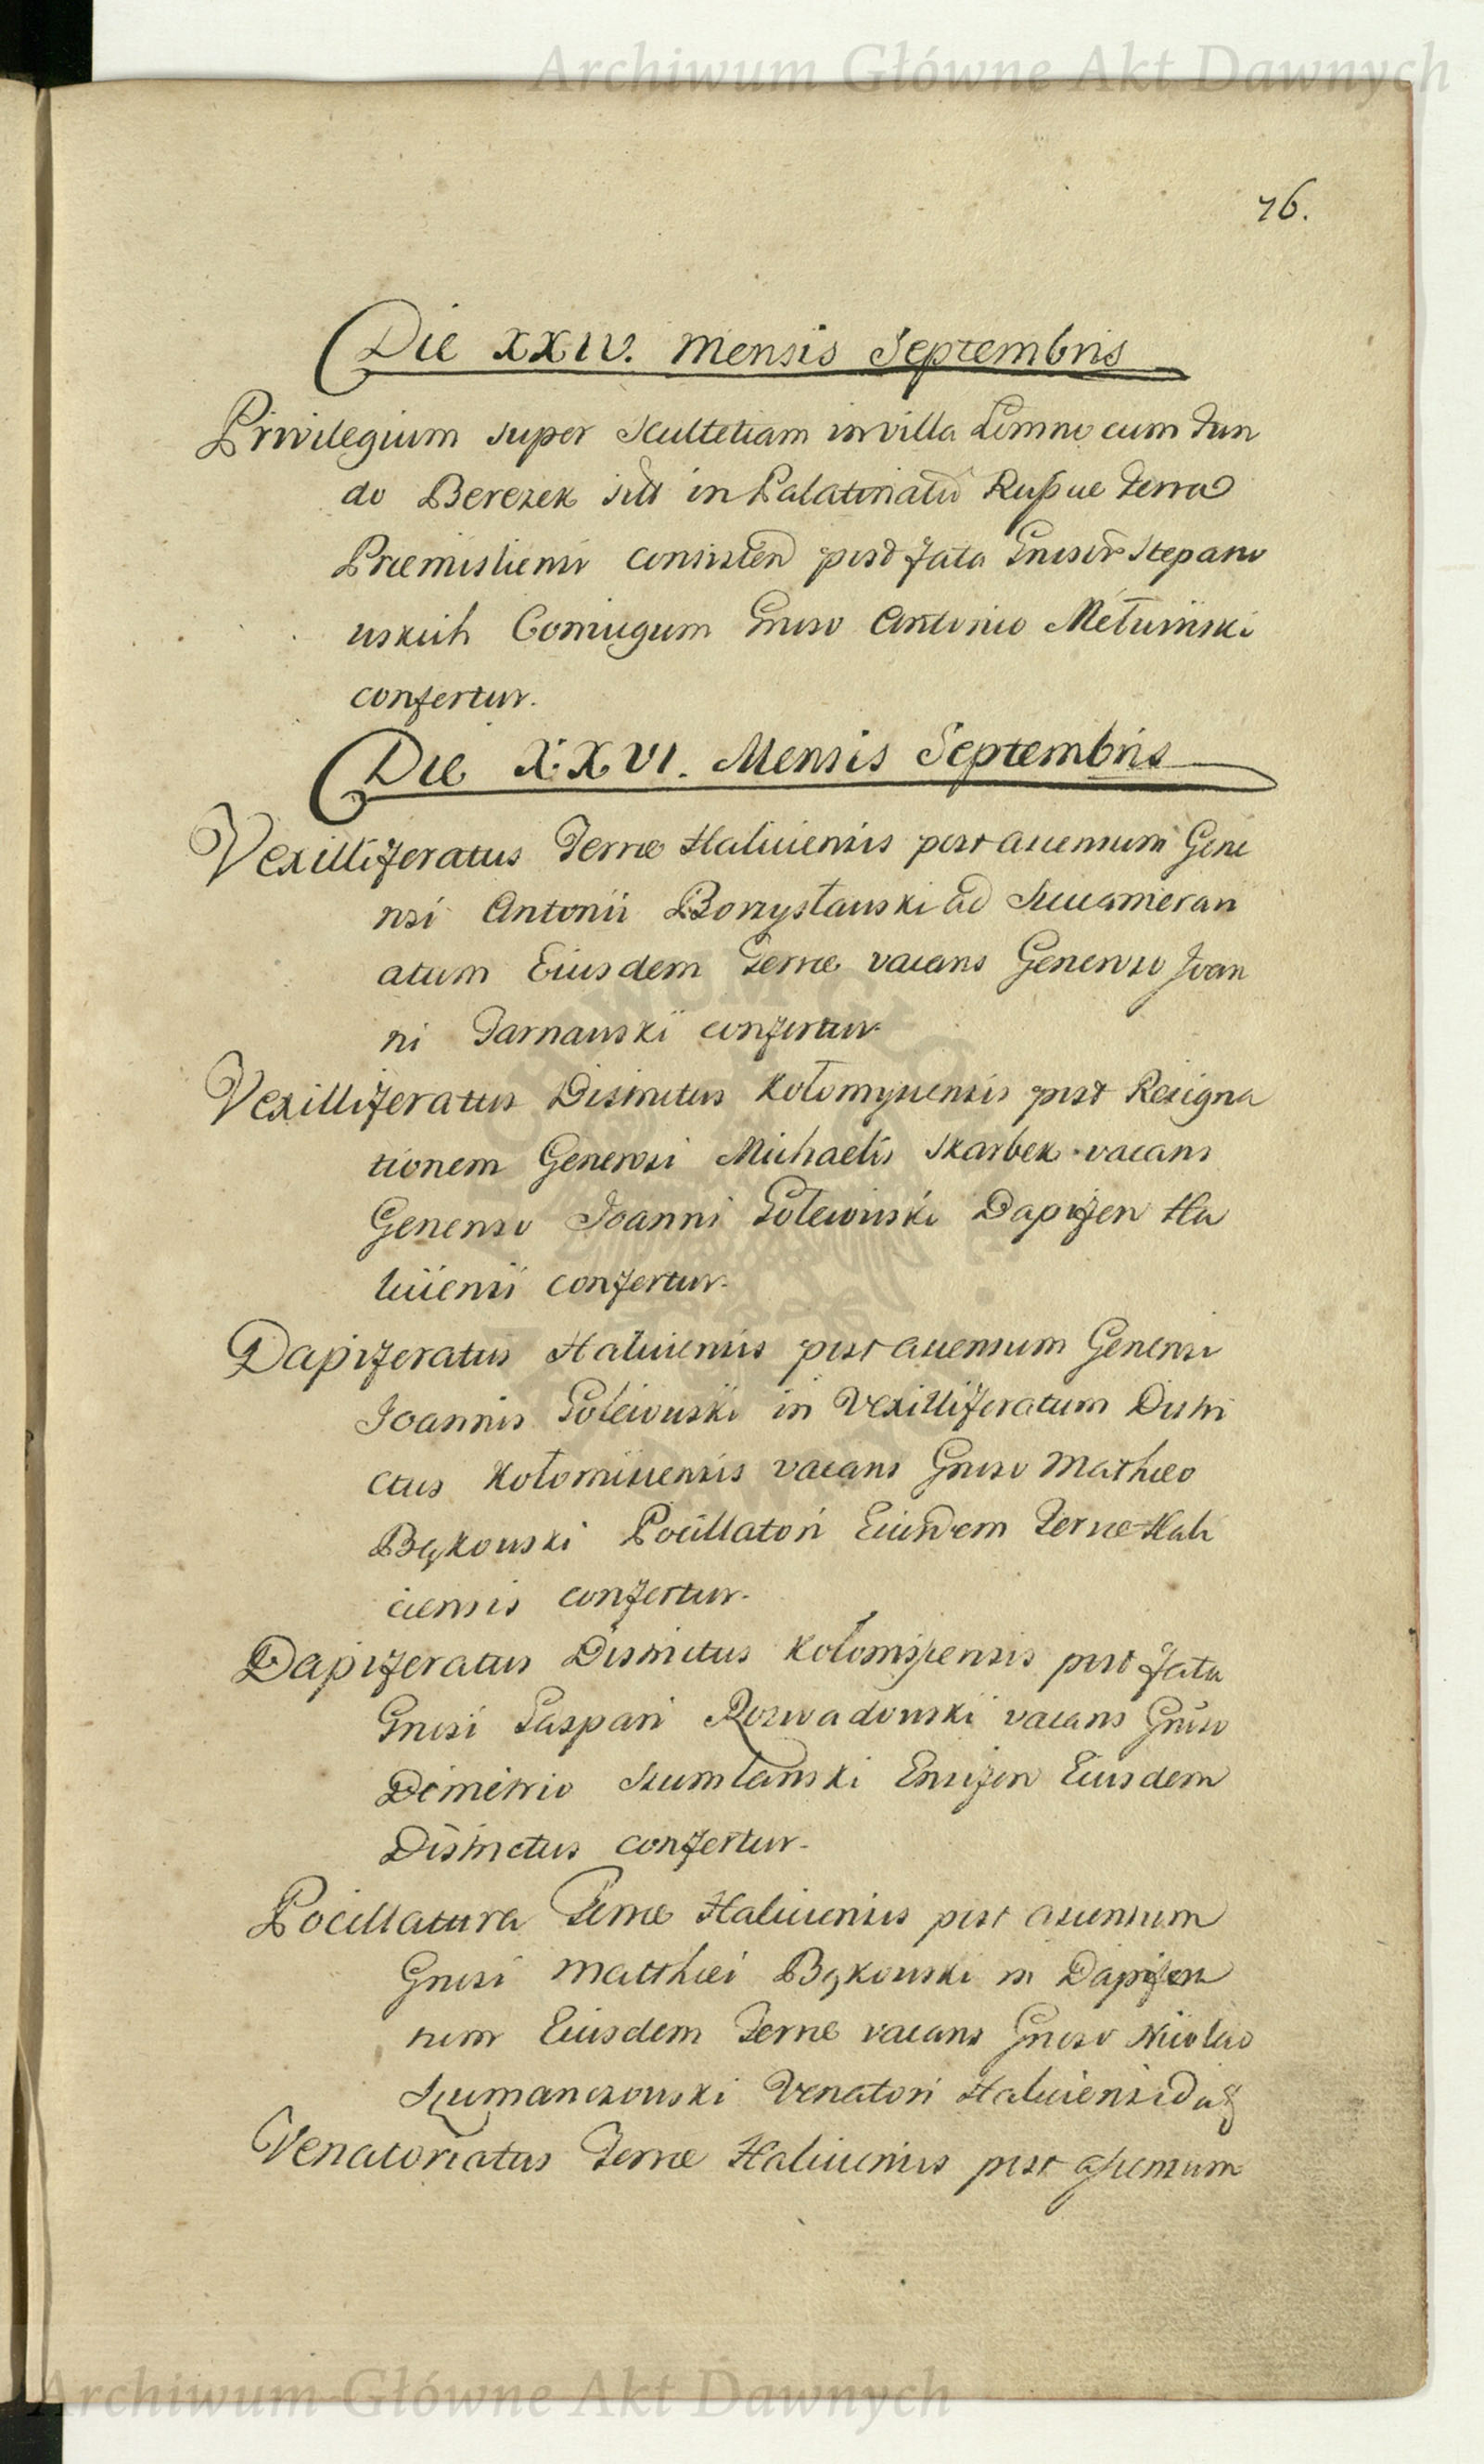 Archiwum Główne Akt Dawnych
76.
Die XXIV. Mensis Septembris
Privilegium super Scultetiam in villa Łomne cum Fun
do Berezek sitt in Palatinatu Russiae Terra
Praemisliensi consisten post fata Gnosor Stepano
wskich Coniugum Gnoso Antonio Metuiński
confertur.
Die XXVI. Mensis Septembris
Vexilliferatus Terrae Haliciensis post ascensum Gene
rosi Antonii Borzysławski ad Succamerari
atum Eiusdem Terrae vacans Generoso Joan
ni Tarnawski confertur.
Vexilliferatus Districtus Kołomyiensis post Resigna
tionem Generosi Michaelis Skarbek vacans
Generoso Joanni Golewiski Dapifero Ha
liciensi confertur.
Dapiferatus Haliciensis post ascensum Generosi
Joannis Golewski in Vexilliferatum Distri
ctus Kołomiiensis vacans Gnoso Mathaeo
Bąkowski Pocillatori Eiusdem Terrae Hali
ciensis confertur.
Dapiferatus Districtus Kołomyiensis post fata
Gnosi Gaspari Rozwadowski vacans Gnoso
Dimitrio Szumlanski Ensifero Eiusdem
Districtus confertur.
Pocillatura Terrae Haliciensis post ascensum
Gnosi Matthaei Bąkowski in Dapifera
tum Eiusdem Terrae vacans Gnoso Nicolao
Szumanczowski Venatori Haliciensi
Venatoriatus Terrae Haliciensis post assensum
Archiwum Główne Akt Dawnych